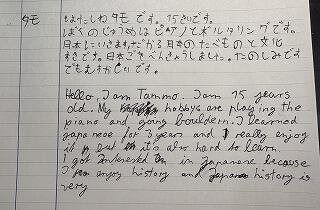 タモ
はたしわタモです。15さいです。
ぼくのしゅうめはピアノとボルタリングです。
日本にいきますだから日本のたべものと文化
すきです。日本ごをべんきょうしました。たのしみです
でもむずかしいです。
Hello, I am Tammo. I am 15 years
old. My hobbys are playing the
piano and going bouldern. I learned
japanese for 3 years and I really enjoy
it but it's also hard to learn
I got interested in japanese because
I enjoy history and Japans history is
very